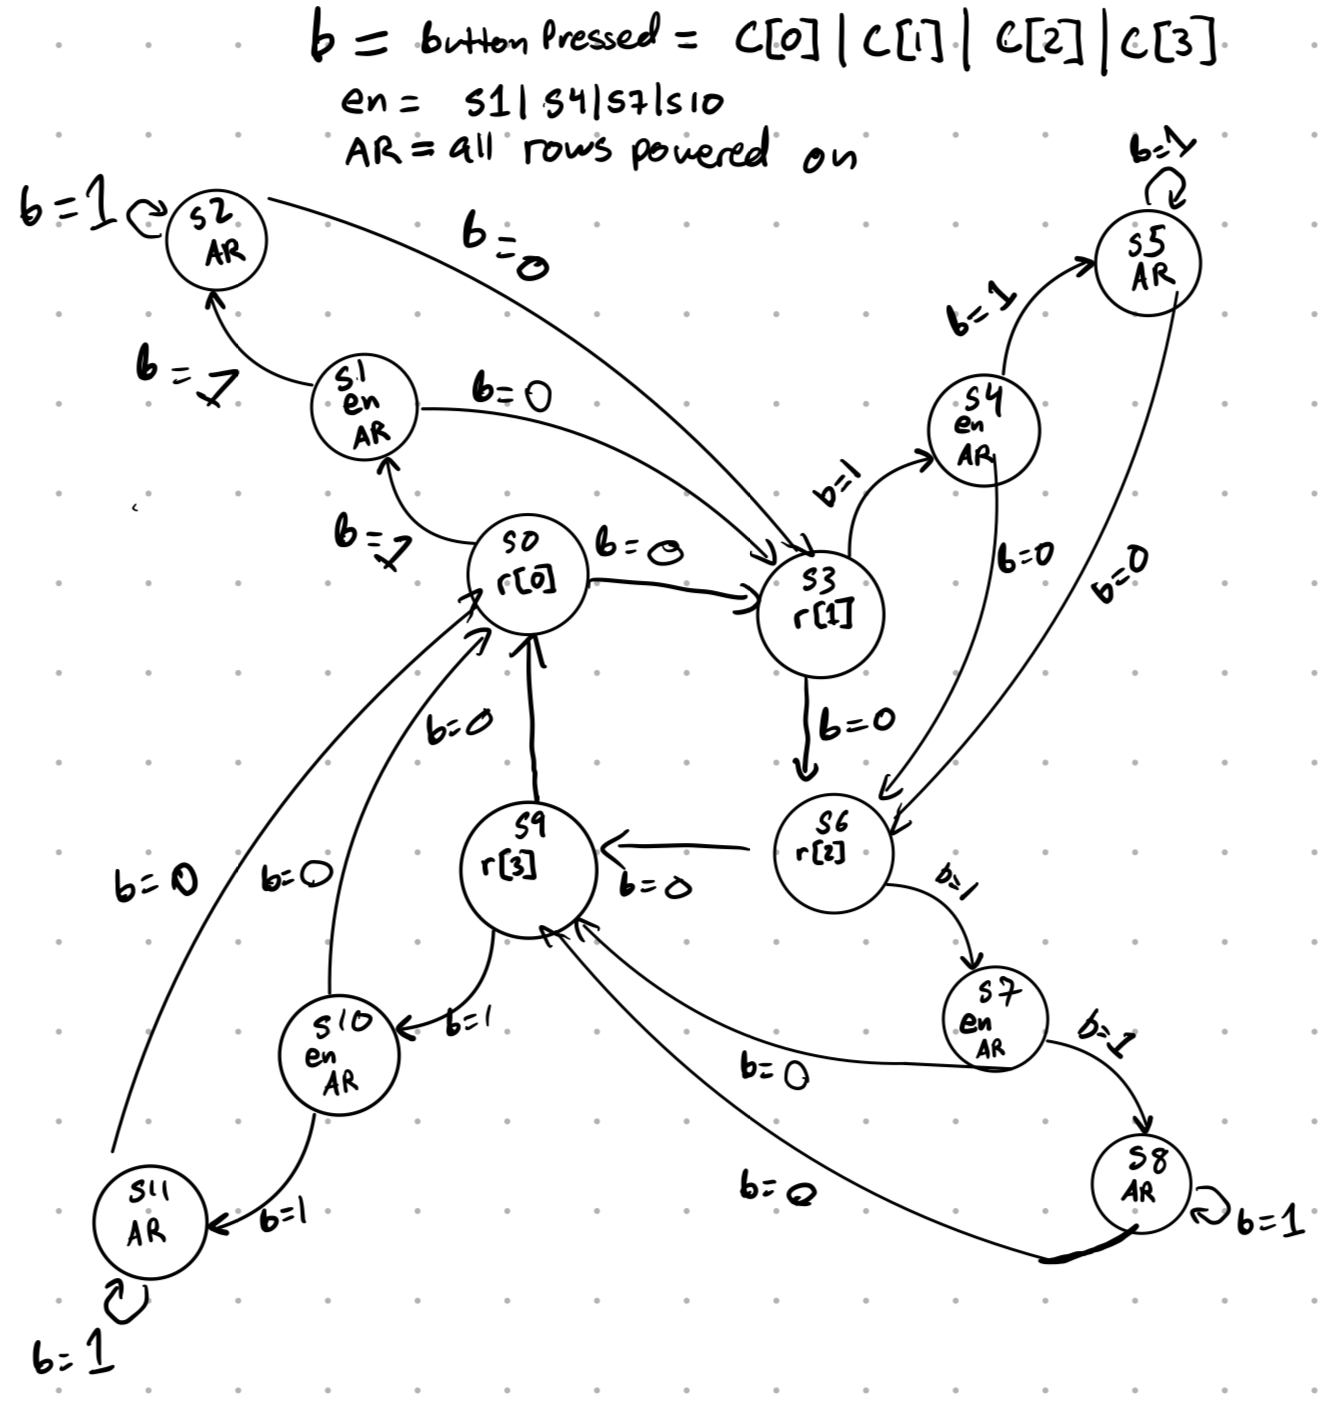 b = button Pressed = C[0] | C[1] | C[2] | C[3]
en = S1 | S4 | S7 | S10
AR = all rows powered on
b=1
b=1
S2
AR
b=0
S5
AR
b=1
b=1
S1
en
AR
b=0
S4
en
AR
b=1
b=1
S0
r[0]
b=0
S3
r[1]
b=0
b=0
b=0
b=0
S9
r[3]
b=0
S6
r[2]
b=0
b=0
b=1
S10
en
AR
b=1
S7
en
AR
b=1
b=0
S11
AR
b=1
b=0
S8
AR
b=1
b=1